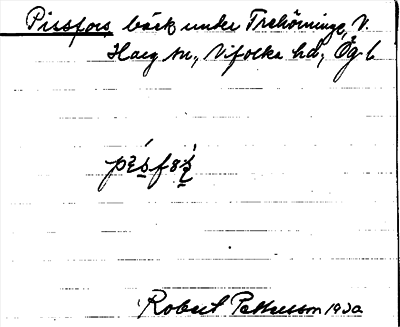 Pissfors bäck under Trehörninge, V.
Harg sn, Vifolka hd, Ög. l
Robert Pettersson 1920